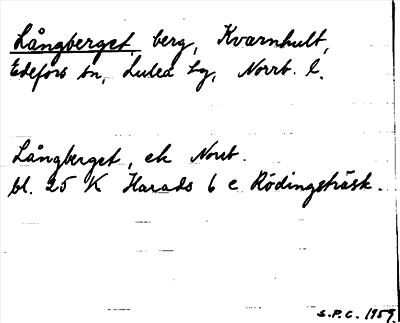 Långberget, berg, Kvarnhult,
Edefors sn, Luleå lg, Norrb. l.
Långberget, ek Norrb.
bl. 25 K Harads 6 c Rödingsträsk.
S.P.C. 1959.